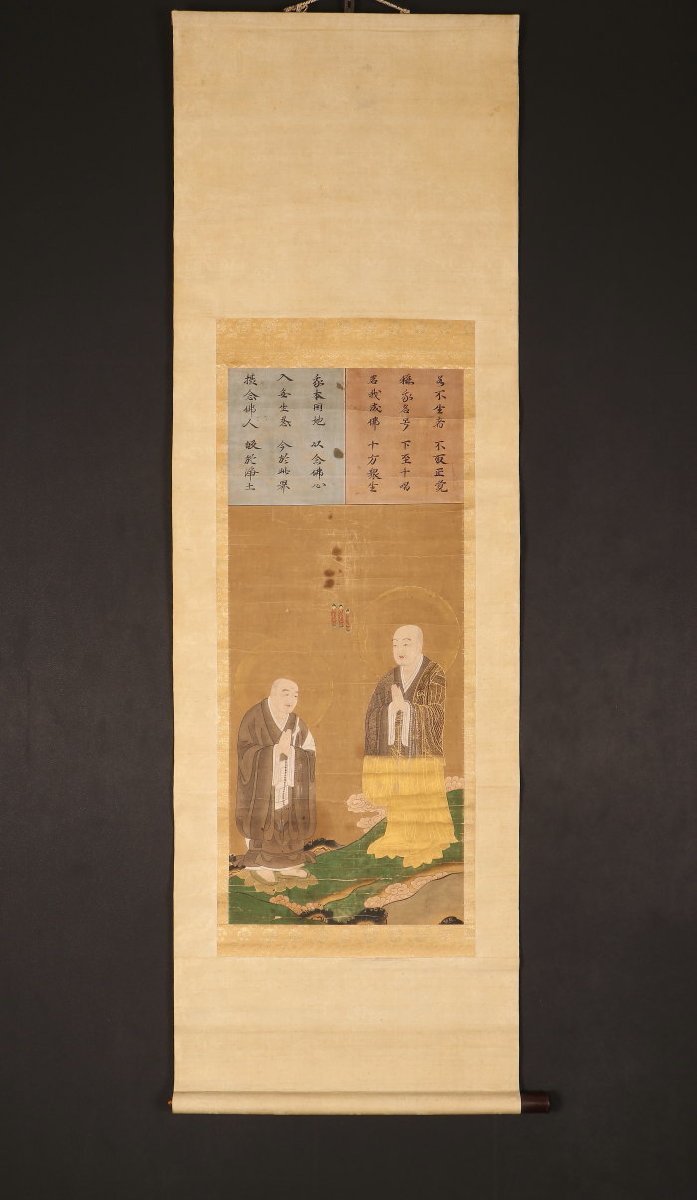 若我成佛 十方衆生
稱我名号 下至十唱
若不生者 不取正覚
我本因地 以念佛心
入無生忍 今於此界
摂念佛人 皈於浄土